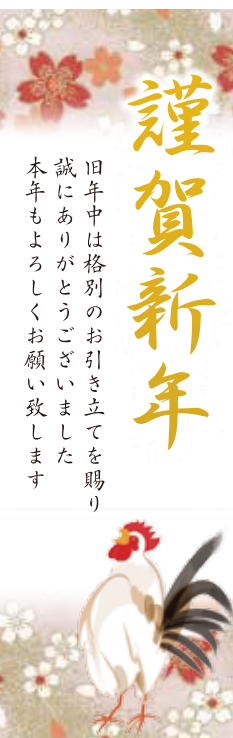 謹賀新年
旧年中は格別のお引き立てを賜り
誠にありがとうございました
本年もよろしくお願い致します